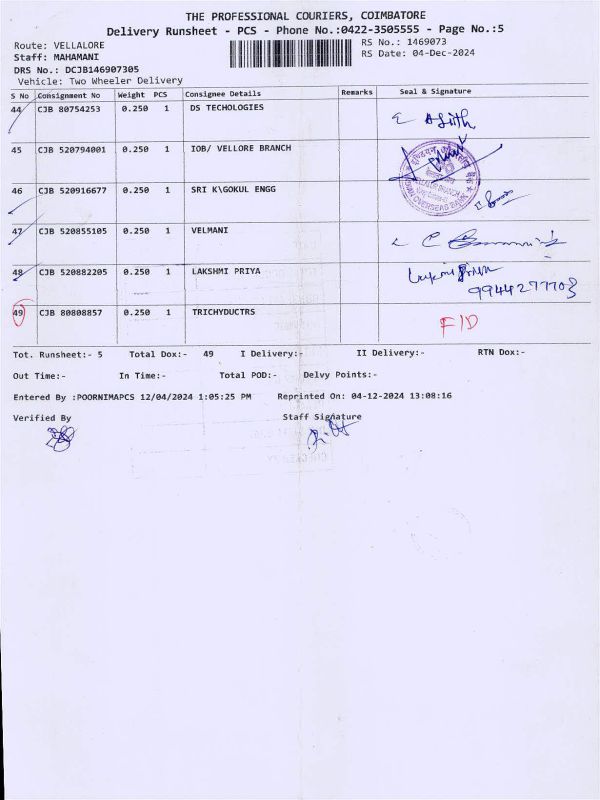 THE PROFESSIONAL COURIERS, COIMBATORE
Delivery Runsheet - PCS - Phone No.:0422-3505555 - Page No.:5
Route: VELLALORE
RS No.: 1469073
Staff: MAHAMANI
RS Date: 04-Dec-2024
DRS No.: DCJB146907305
Vehicle: Two Wheeler Delivery
S No Consignment No Weight PCS Consignee Details Remarks Seal & Signature
44 CJB 80754253 0.250 1 DS TECHOLOGIES
45 CJB 520794001 0.250 1 IOB/ VELLORE BRANCH
46 CJB 520916677 0.250 1 SRI K\GOKUL ENGG
47 CJB 520855105 0.250 1 VELMANI
48 CJB 520882205 0.250 1 LAKSHMI PRIYA
9944277703
49 CJB 80808857 0.250 1 TRICHYDUCTRS F/D
Tot. Runsheet:- 5 Total Dox:- 49 I Delivery:- II Delivery:- RTN Dox:-
Out Time:- In Time:- Total POD:- Delvy Points:-
Entered By :POORNIMAPCS 12/04/2024 1:05:25 PM Reprinted On: 04-12-2024 13:08:16
Verified By Staff Signature